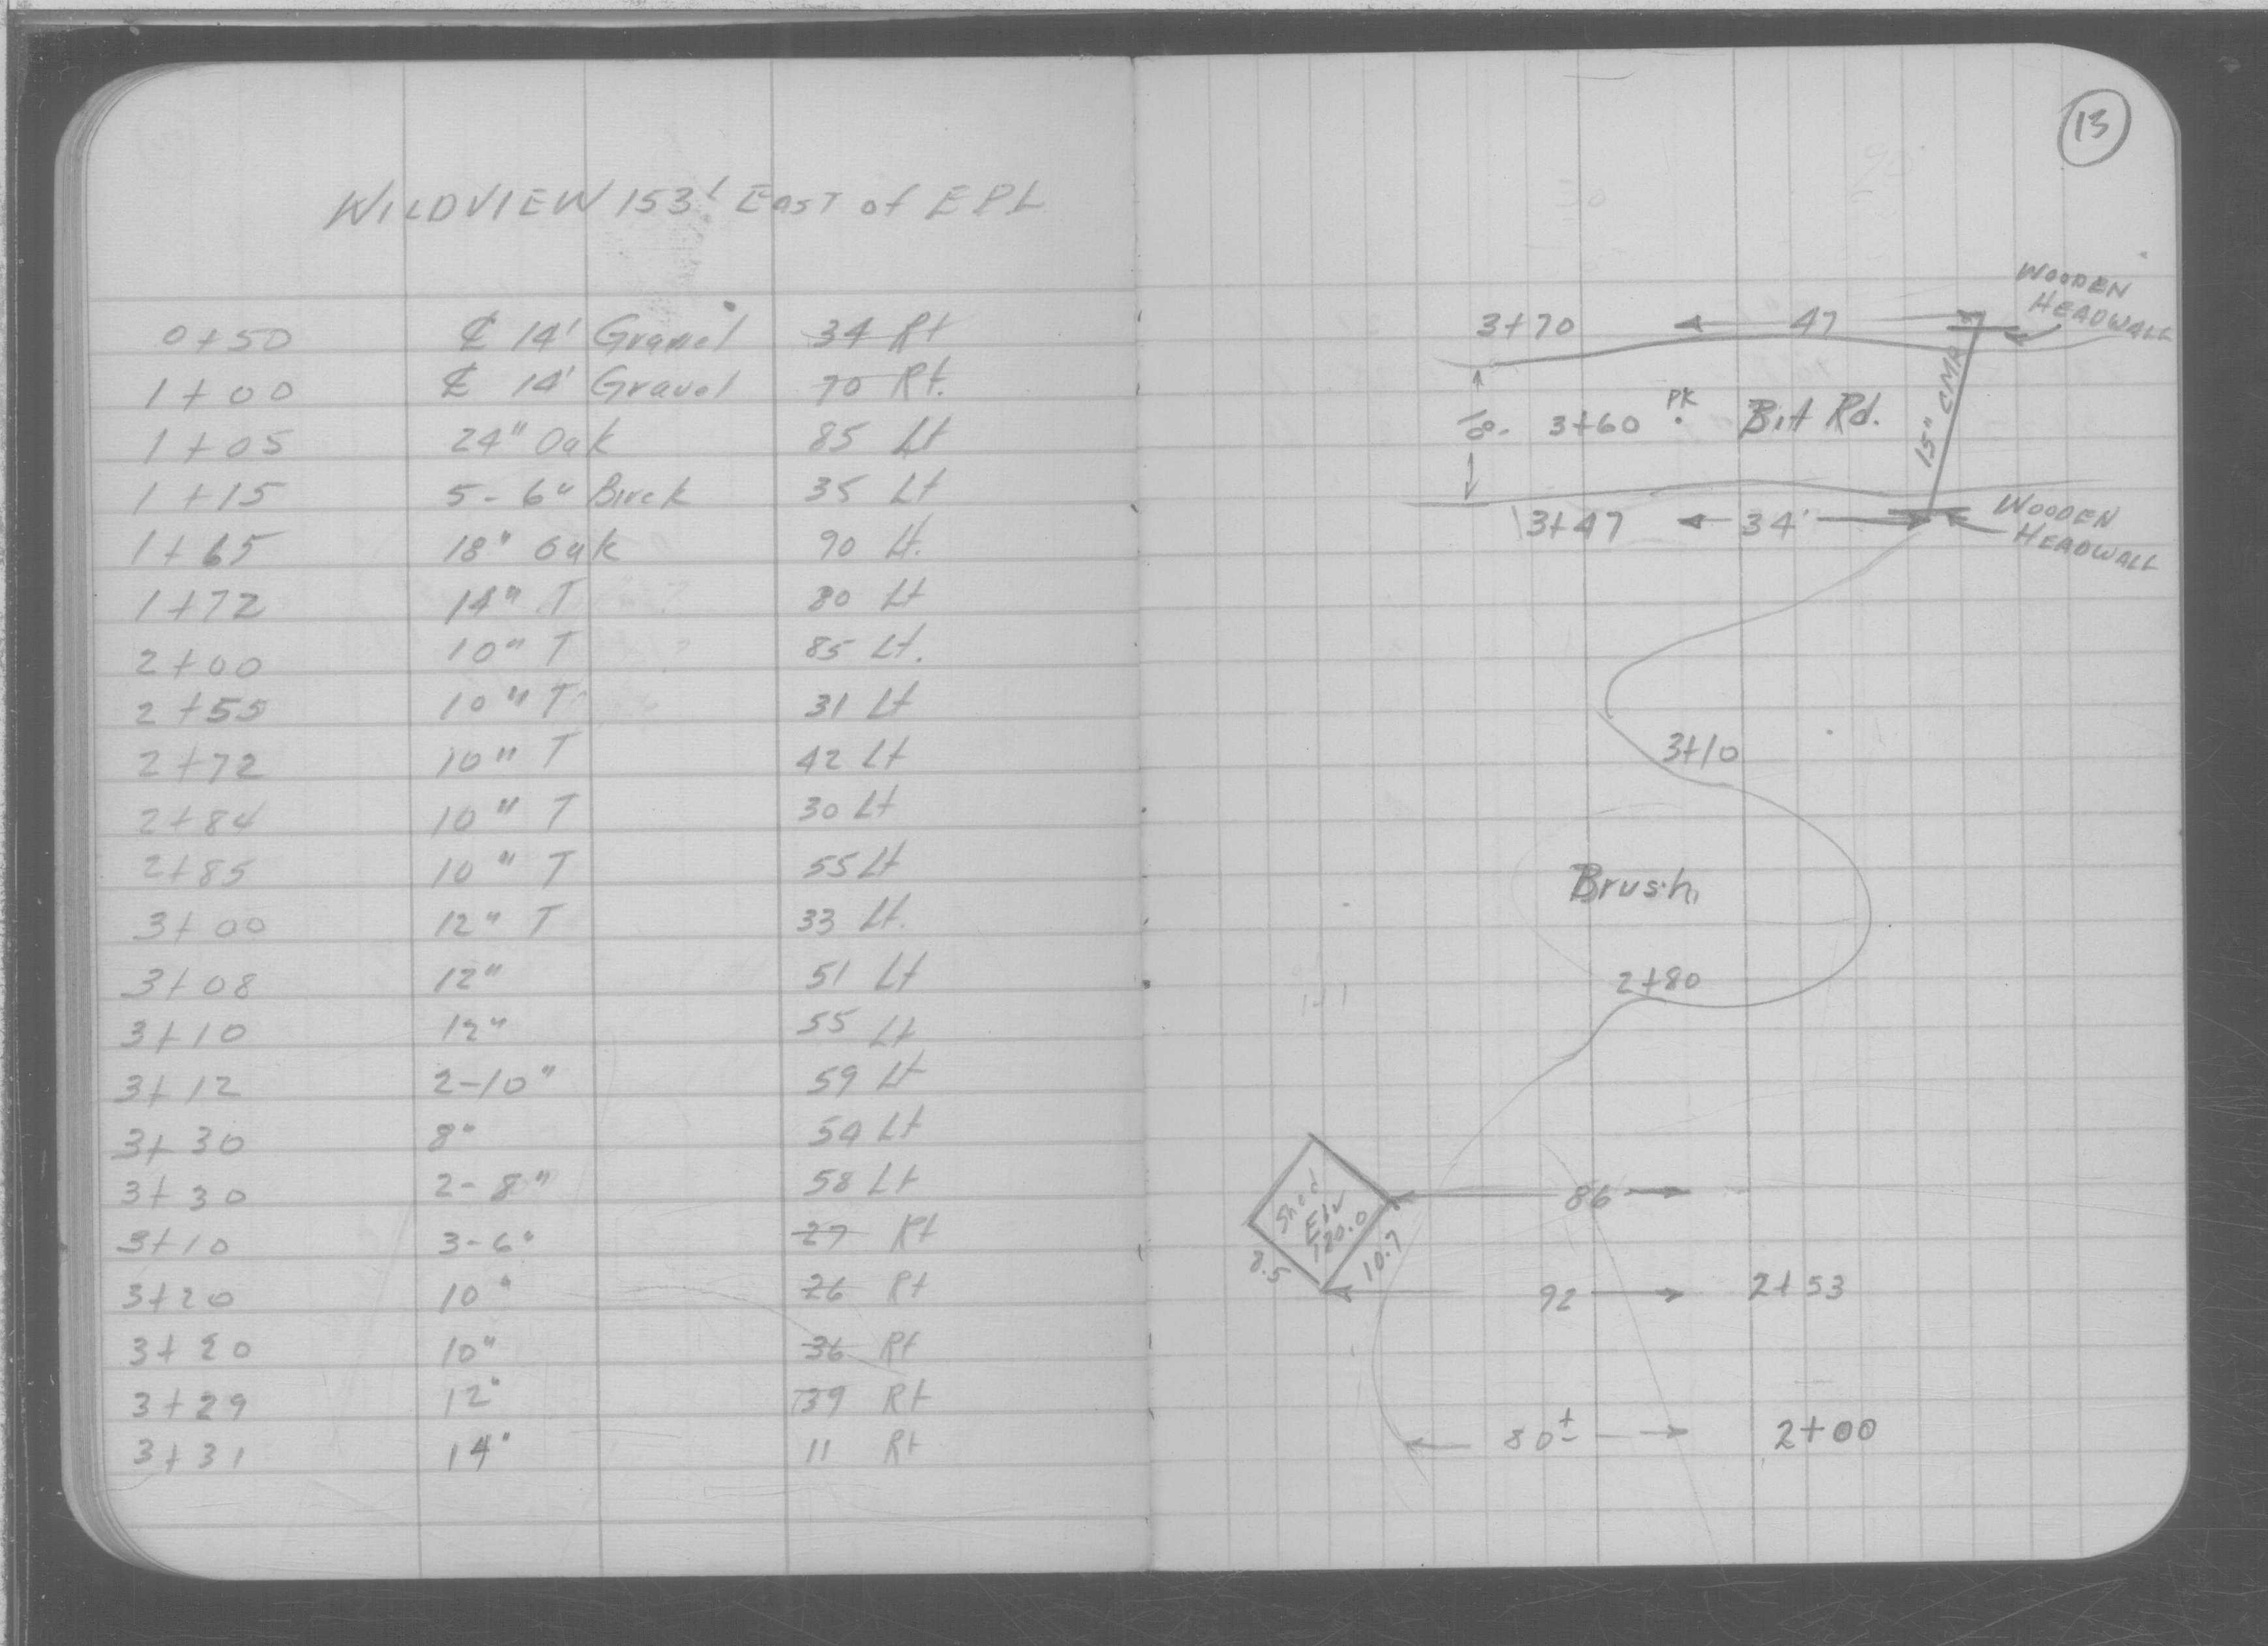 WILDVIEW 153' EAST of EPL
0+50 ℄ 14' Gravel 34 Rt
1+00 ℄ 14' Gravel 70 Rt.
1+05 24" Oak 85 Lt
1+15 5-6" Birck 35 Lt
1+65 18" Oak 90 Lt.
1+72 14" T 80 Lt
2+00 10" T 85 Lt.
2+55 10" T 31 Lt
2+72 10" T 42 Lt
2+84 10" T 30 Lt
2+85 10" T 55 Lt
3+00 12" T 33 Lt.
3+08 12" 51 Lt
3+10 12" 55 Lt
3+12 2-10" 59 Lt
3+30 8" 54 Lt
3+30 2-8" 58 Lt
3+10 3-6" 27 Rt
3+20 10" 26 Rt
3+20 10" 36 Rt
3+29 12" 39 Rt
3+31 14" 11 Rt
13
WOODEN
HEADWALL
3+70 47
15" CMP
18. 3+60 PK Bit Rd.
3+47 34'
WOODEN
HEADWALL
3+10
Brush
2+80
86
Shed
Elv
120.0
8.5 10.7
92 2+53
80± 2+00